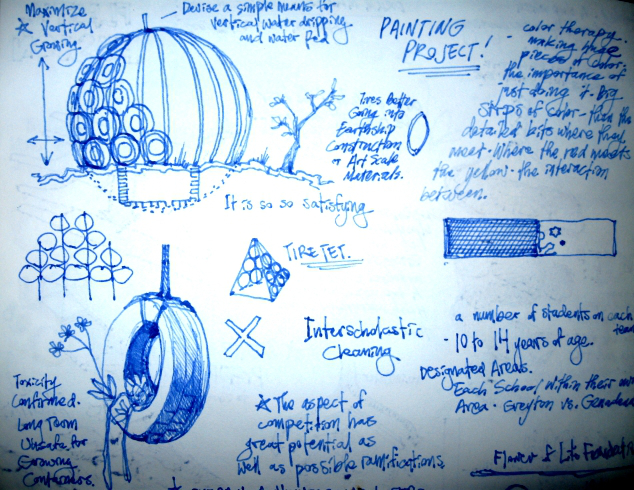 Maximize
Vertical
Growing
Devise a simple means for
vertical water dripping
and water fed
PAINTING
PROJECT!
- color therapy.
making huge
pieces of color.
the importance of
just doing it. Big
strips of color - then the
detailed bits where they
meet. Where the red meets
the yellow. the interaction
between.
Tires better
Going into
Earthship
Construction
or Art Scale
Materials.
It is so so satisfying
TIRE TET.
Interscholastic
Cleaning
a number of students on each
team
- 10 to 14 years of age.
Designated Areas.
Each School within their own
Area. Greyton vs. Genadendal
Toxicity
Confirmed.
Long Term
Unsafe for
Growing
Containers.
The aspect of
competition has
great potential as
well as possible ramifications.
Flower of Life Foundation